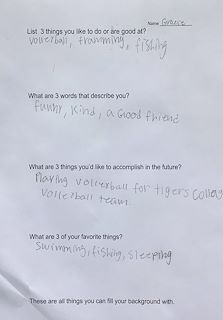 Name Grace
List 3 things you like to do or are good at?
volleyball, framming, fishing
What are 3 words that describe you?
funny, kind, a Good friend
What are 3 things you'd like to accomplish in the future?
Playing volleyball for tigers Colleg
volleyball team
What are 3 of your favorite things?
Swimming, fishing, sleeping
These are all things you can fill your background with.